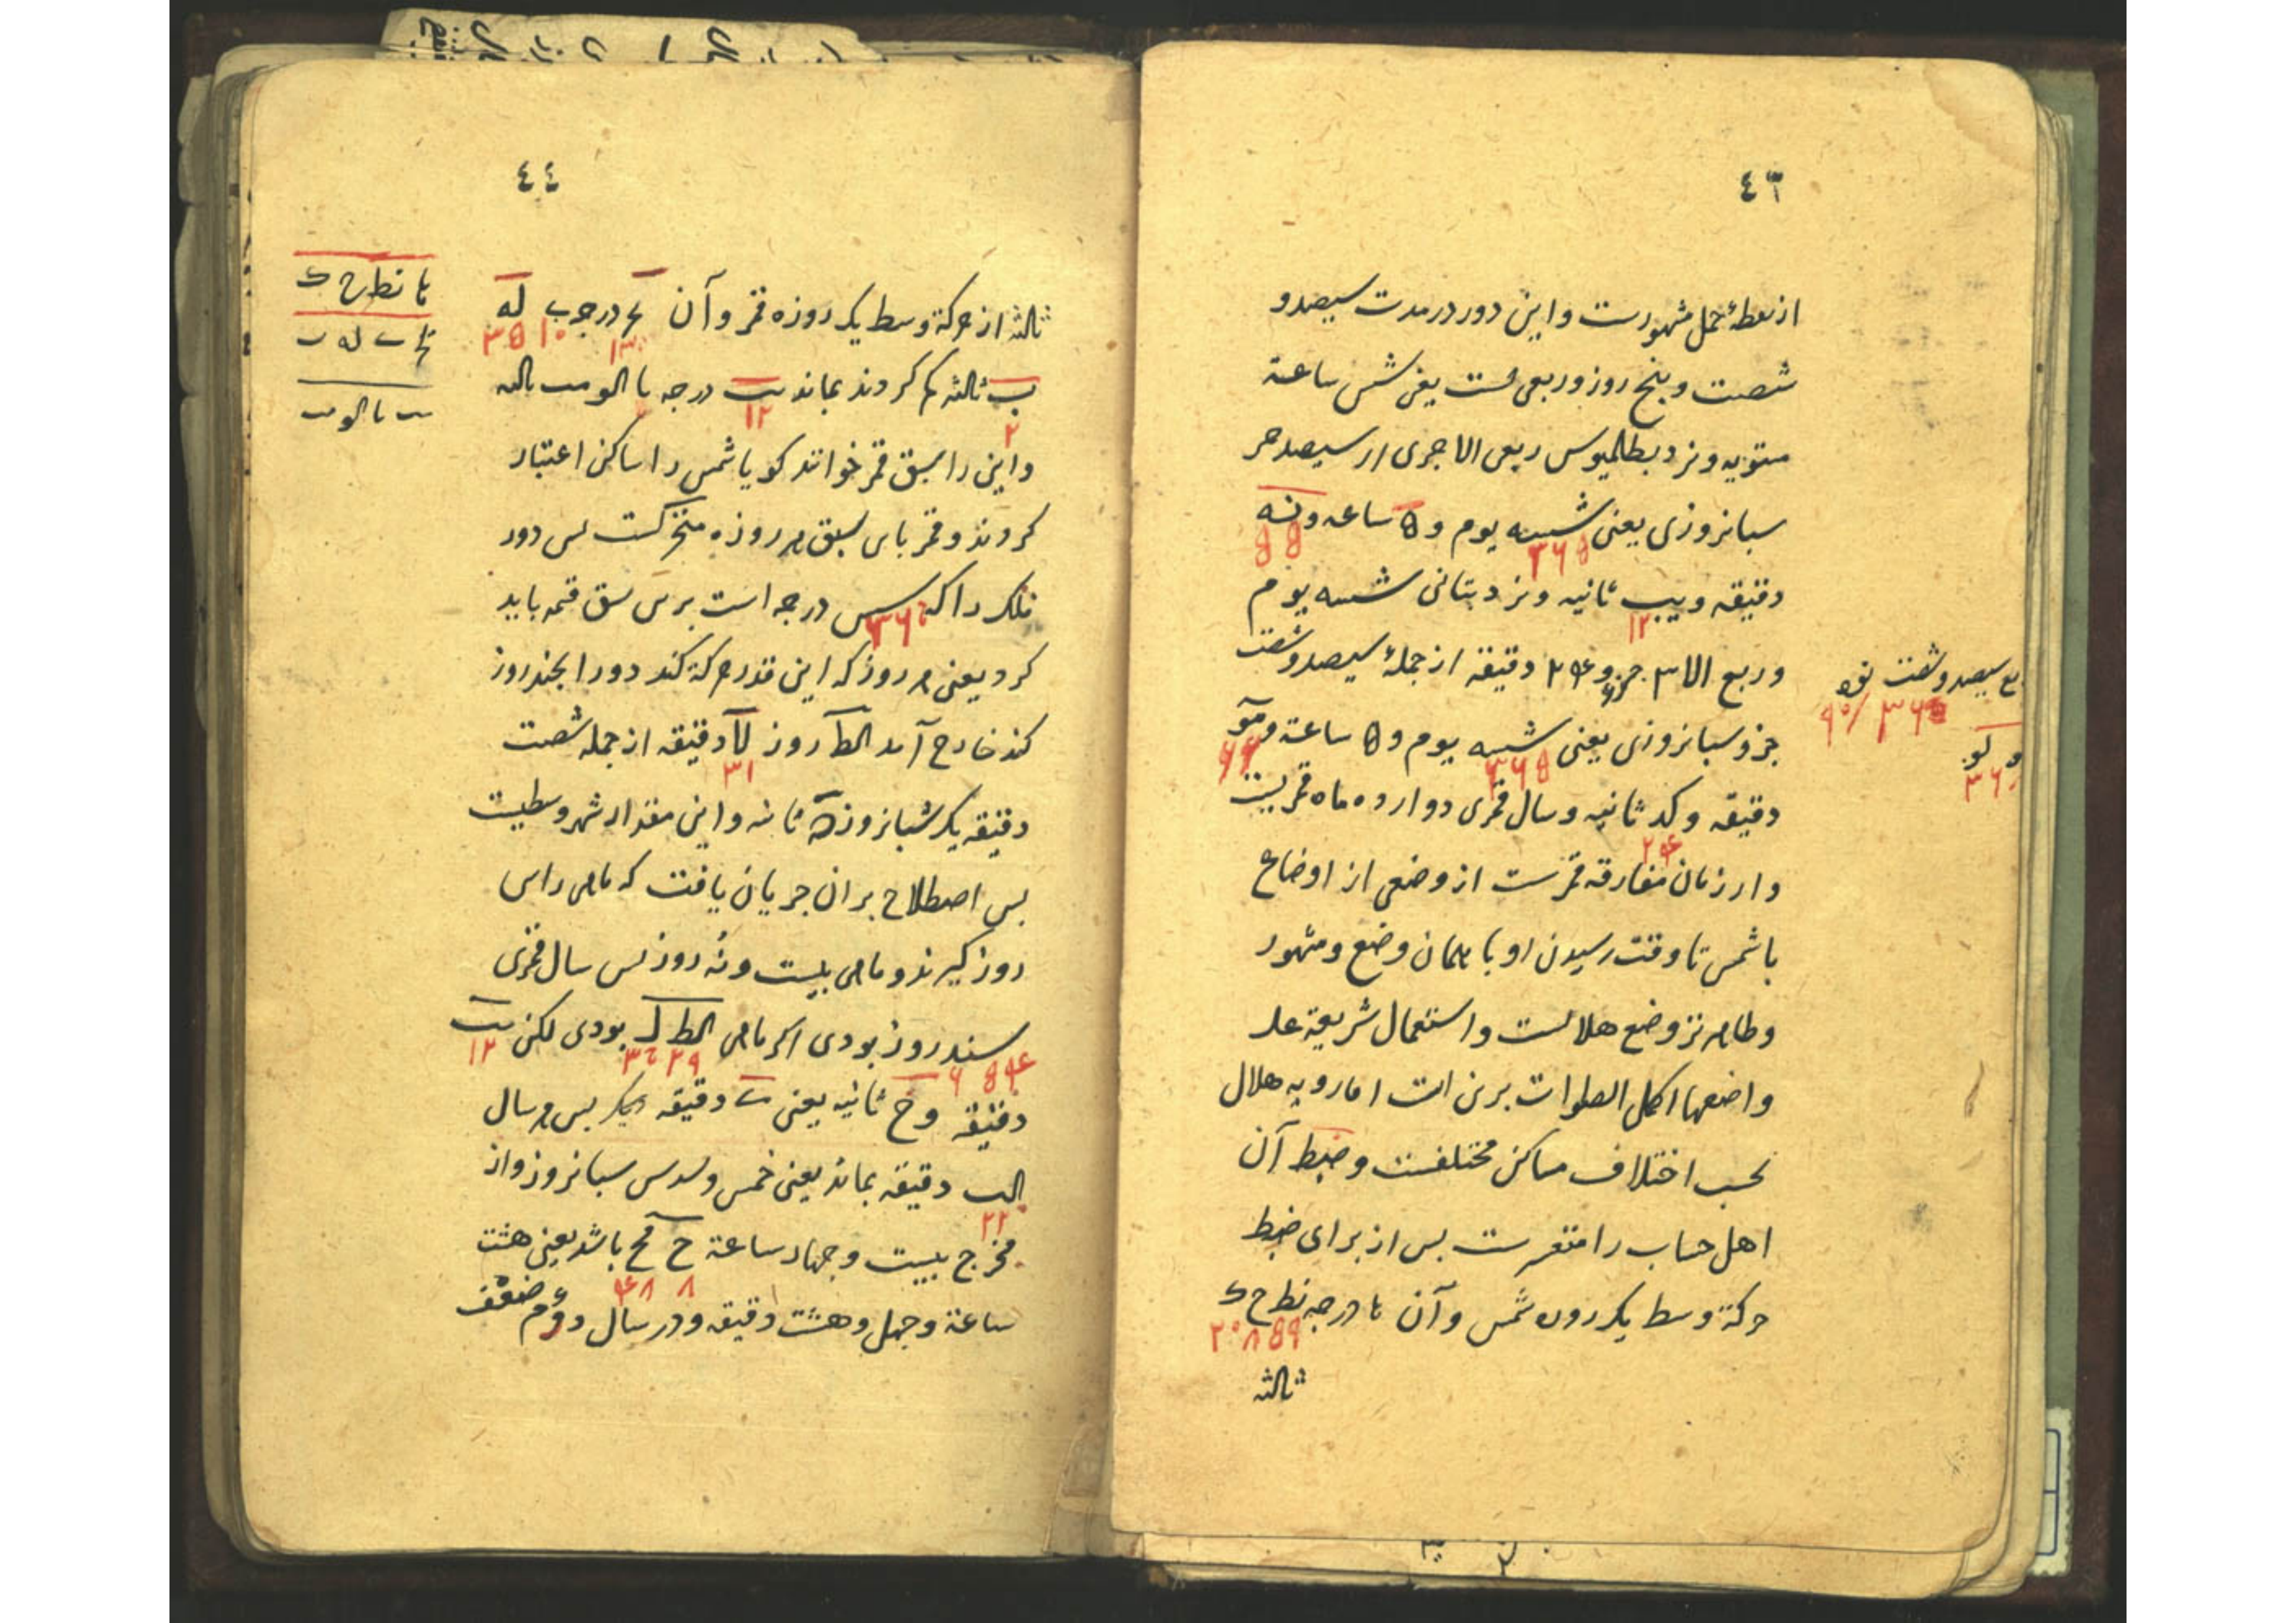 ٤٣
از نقطهٔ حمل مشهورست و این دور در مدت سیصد و
شصت و پنج روز و ربعی است یعنی شش ساعة
مستویه و نزد بطالمیوس ربعی الا جزی از سیصد جز
شبانروزی یعنی شسه یوم و ۵ ساعه و نه
۳۶۵ ۵۵
دقیقه و یب ثانیه و نزد بتانی شسه یوم
۱۲
و ربع الا ۳ جزو و ۲۴ دقیقه از جملهٔ سیصد و شصت
جزو شبانروزی یعنی شسه یوم و ۵ ساعة و مو
۳۶۵ ۴۶
دقیقه و کد ثانیه و سال قمری دوازده ماه قمریست
۲۴
و از زمان مفارقه قمرست از وضعی از اوضاع
با شمس تا وقت رسیدن او با همان وضع و مشهور
و ظاهرتر وضع هلالست و استعمال شریعة علی
واضعها اکمل الصلوات برین است اما رویه هلال
بحسب اختلاف مساکن مختلفست و ضبط آن
اهل حساب را متعسرست بس از برای ضبط
حرکة وسط یکروزه شمس و آن ۰ا درجه نط ح ک
۵۹ ۸ ۲۰
ثالثه
سیصد و شصت
۳۶۰
لو
۳۶
٤٤
ثالثه از حرکة وسط یکروزه قمر و آن یج درجه ی له
۱۳ ۱۰ ۳۵
ب ثالثه کم کردند بماند یب درجه یا الو مب ثالثه
۲ ۱۲
و این را سبق قمر خوانند کویا شمس را ساکن اعتبار
کردند و قمر باین سبق هر روزه متحرکست بس دور
فلک را که سس درجه است برین سبق قسمه باید
۳۶۰
کرد یعنی هر روز که این قدر حرکة کند دور را بچند روز
کند خارج آمد الط روز لا دقیقه از جمله شصت
۳۱
دقیقه یک شبانروز ن ثانیه و این مقدار شهر وسطیست
بس اصطلاح بر ان جریان یافت که ماهی را سی
روز کیرند و ماهی بیست و نه روز بس سال قمری
سند روز بودی اکر ماهی الط ل بودی لکن یب
۳۵۴ ۲۹ ۳۰ ۱۲
دقیقه و ح ثانیه یعنی دقیقه دیکر بس هر سال
الب دقیقه بماند یعنی خمس و سدس شبانروز و از
۲۲
مخرج بیست و جهار ساعة ح مح باشد یعنی هشت
۸ ۴۸
ساعة و جهل و هشت دقیقه و در سال دوم ضعف
۰ا نط ح ک
یج ی له ب
یب یا الو مب